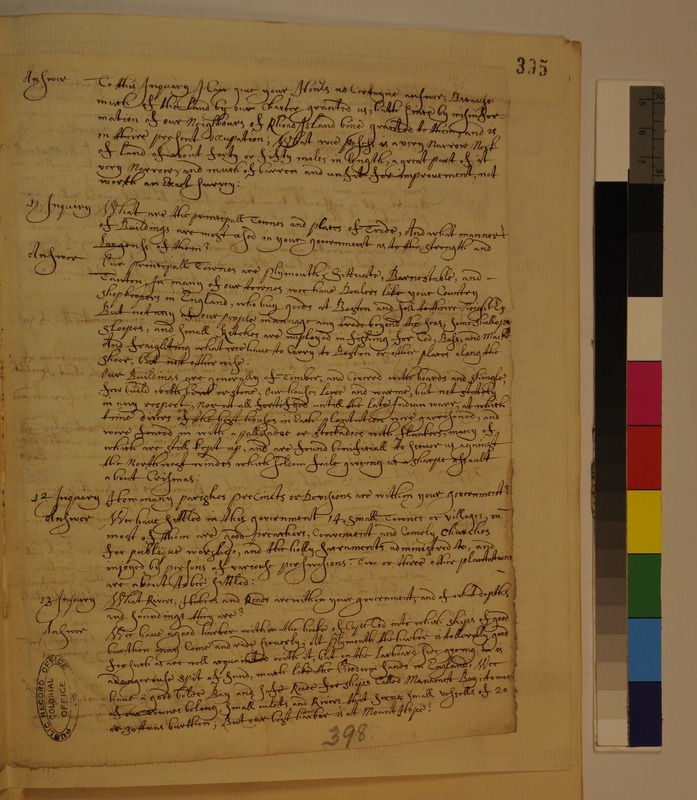 395
Answer To this Inquiry I Can give your Honrs no Certayne answer, Because
much of the land by our Charter granted us, hath since by misinfor-
mation of our Neighbours of Rhoad Island bine granted to them, and is
in theire present occupation; What wee possess is a very Narrow Neck
of land of about forty or fifty miles in length, a great part of it
very Narrow, and much of barren and unfit for improvement, not
worth an Exact survey:
11 Inquiry What are the principall Townes and places of Trade, And what manner
of Buildings are most used in your government as to the strength and
Largness of them?
Answer Our principall Townes are Plymouth, Sittuate, Barnestable, and
Taunton, In many of our townes wee have Dealers like your Country
Shopkeepers in England, who buy goods at Boston and sell to theire
But not any of our people mannage any trade beyond the seas; some shallops
Sloopes, and small Ketches are imployed in fishing for Cod, Bass, and Mack
And fraighting what wee have to Carry to Boston or other places along the
shore, but not otherwise.
Our Buildings are generally of Timber, and Covered with boards and shingle,
few build with brick or stone, Our houses Low and warme, but not stately
in any respect, Nor at all fortifyed untill the late Indian warr, at which
time divers of the best houses in Each plantation were garrisoned, and
were fenced in with a pallisadoe or stockadoes with flankers, many of
which are still kept up, and are found beneficiall to fence us against
the Northwest windes which seldom faile giving us a sharpe assault
about Crismas:
12 Inquiry How many parishes precincts or Devisions are within your government?
Answer We have settled in this government 14, small Townes or villages, in
most of them are good preachers, Convenient and Comely Churches
for publique worship, and the holy sacraments administred to, and
injoyed by persons of various perswasions: Two or three other plantations
are about to bee settled:
13 Inquiry What Rivers, Harbors and Roads are within your government, and of what depths
and soundings they are?
Answer Wee have a good harbor within the hooke of Cape Cod into which shipps of good
burthen may Come and ride securely; At Plymouth the harbor is tollerably good
for such as are well acquainted with it, but on the Larboard side going in is
a dangerouse spit of sand, much like the Goodwin sands in England; Wee
have a good Bay and safe Roade for shipps Called Manamett Bay; to most
of our Townes belong small inlets and Rivers that secure small vessells of 20
or 30 tonns burthen; But our best harbor is at Mount Hope:
398
PUBLIC RECORD OFFICE
COLONIAL
OFFICE